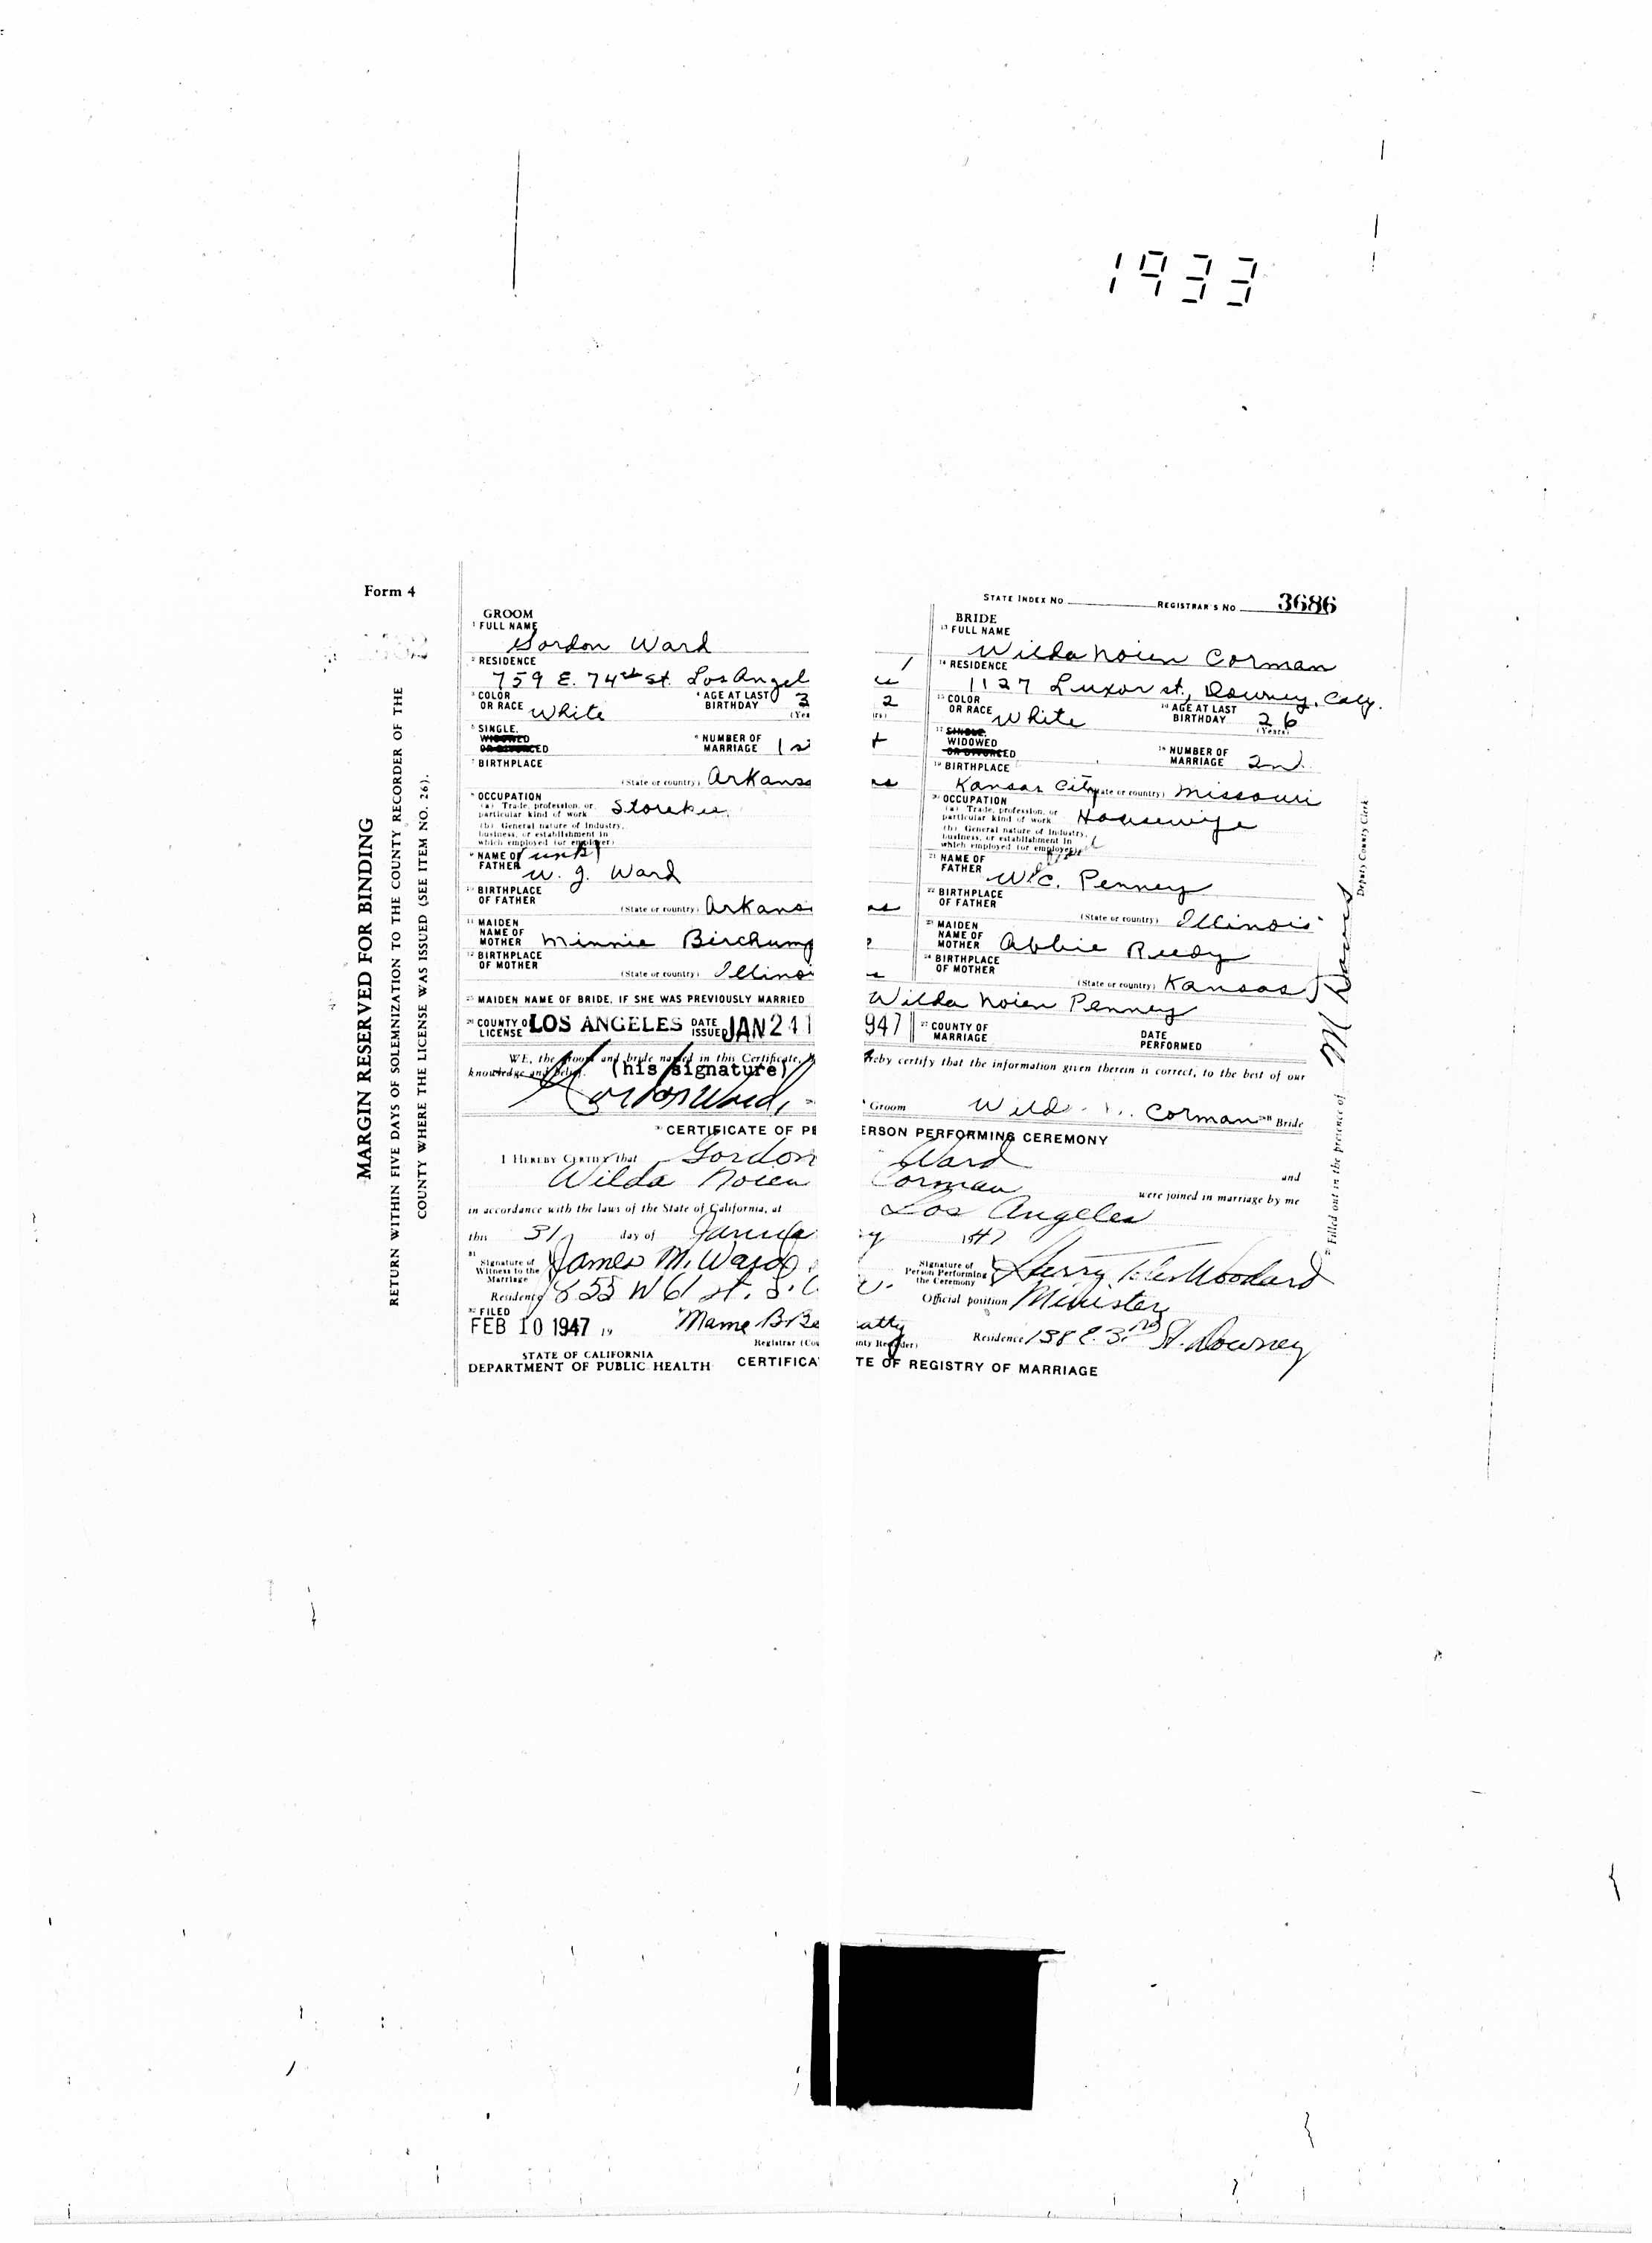 1933
Form 4
STATE INDEX NO. REGISTRAR'S NO. 3686
MARGIN RESERVED FOR BINDING
RETURN WITHIN FIVE DAYS OF SOLEMNIZATION TO THE COUNTY RECORDER OF THE
COUNTY WHERE THE LICENSE WAS ISSUED (SEE ITEM NO. 26).
GROOM
1 FULL NAME
Gordon Ward
2 RESIDENCE
759 E. 74th st. Los Angel
3 COLOR OR RACE White 4 AGE AT LAST BIRTHDAY 3 2
5 SINGLE, WIDOWED OR DIVORCED 6 NUMBER OF MARRIAGE 1st
7 BIRTHPLACE
(State or country) Arkansas
8 OCCUPATION
(a) Trade, profession, or particular kind of work
(b) General nature of Industry, business, or establishment in which employed (or employer)
9 NAME OF FATHER W. J. Ward
10 BIRTHPLACE OF FATHER (State or country) Arkansas
11 MAIDEN NAME OF MOTHER Minnie
12 BIRTHPLACE OF MOTHER (State or country) Illinois
BRIDE
13 FULL NAME
Wilda Noien Corman
14 RESIDENCE
1127 Luxor st., Downey, Calif.
15 COLOR OR RACE White 16 AGE AT LAST BIRTHDAY 26 (Years)
17 SINGLE, WIDOWED OR DIVORCED 18 NUMBER OF MARRIAGE 2nd
19 BIRTHPLACE
Kansas City (State or country) Missouri
20 OCCUPATION
(a) Trade, profession, or particular kind of work Housewife
(b) General nature of Industry, business, or establishment in which employed (or employer)
21 NAME OF FATHER W. C. Penney
22 BIRTHPLACE OF FATHER (State or country) Illinois
23 MAIDEN NAME OF MOTHER Abbie Reedy
24 BIRTHPLACE OF MOTHER (State or country) Kansas
25 MAIDEN NAME OF BRIDE, IF SHE WAS PREVIOUSLY MARRIED Wilda Noien Penney
26 COUNTY OF LICENSE LOS ANGELES DATE ISSUED JAN 24 1947 27 COUNTY OF MARRIAGE DATE PERFORMED
WE, the groom and bride named in this Certificate, hereby certify that the information given therein is correct, to the best of our
knowledge and belief. (his signature)
Gordon Ward, Groom Wilda N. Corman Bride
CERTIFICATE OF PERSON PERFORMING CEREMONY
I HEREBY CERTIFY that Gordon Ward and
Wilda Noien Corman were joined in marriage by me
in accordance with the laws of the State of California, at Los Angeles
this 31 day of January 1947
31 Signature of Witness to the Marriage James M. Ward
Signature of Person Performing the Ceremony Woodard
Residence
Official position Minister
32 FILED
FEB 10 1947 19 Mame B Beatty
Registrar (County Recorder)
Residence 138 E. 3rd St. Downey
STATE OF CALIFORNIA
DEPARTMENT OF PUBLIC HEALTH CERTIFICATE OF REGISTRY OF MARRIAGE
Filled out in the presence of
Deputy County Clerk